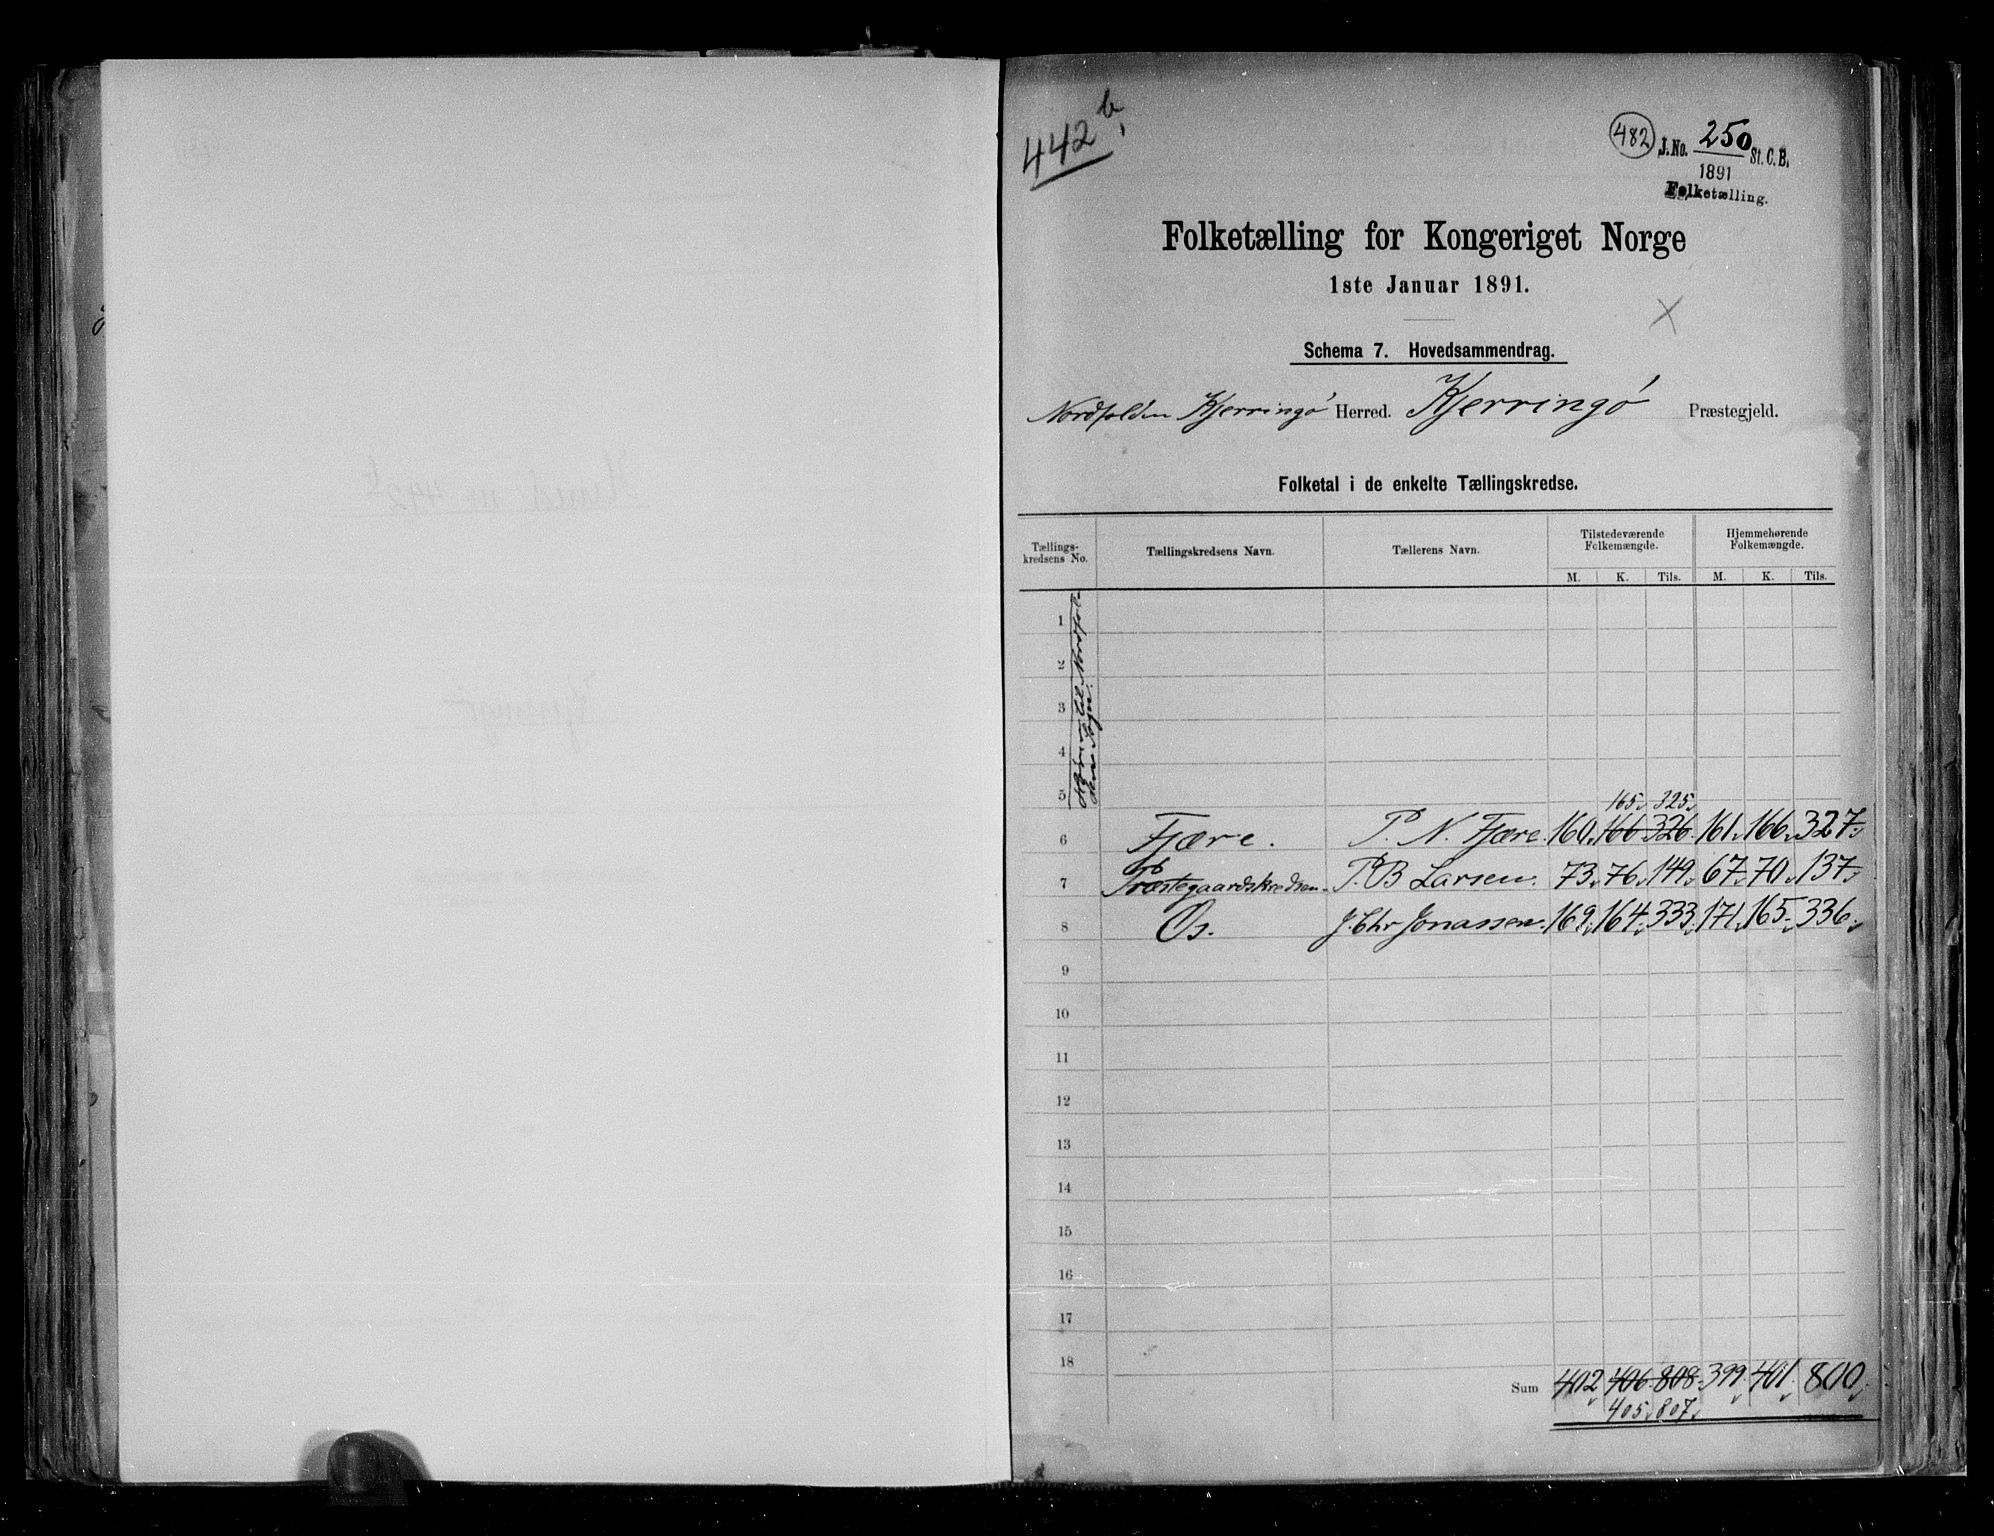 442 b.
482 J. No. 250 St. C. B.
1891
Folketælling.
Folketælling for Kongeriget Norge
1ste Januar 1891.
Schema 7. Hovedsammendrag.
Nordfolden Kjerringø Herred. Kjerringø Præstegjeld.
Folketal i de enkelte Tællingskredse.
Tællings-kredsens No. Tællingskredsens Navn. Tællerens Navn. Tilstedeværende Folkemængde. Hjemmehørende Folkemængde.
M. K. Tils. M. K. Tils.
1
2
3
4
5
til Nordfol-
dens Sogn.
165 325
6 Fjære. P. N. Fjære. 160 166 326 161 166 327
7 Præstegaardskredsen. P. B Larsen. 73 76 149 67 70 137
8 Os. J. Chr Jonassen. 169 164 333 171 165 336
9
10
11
12
13
14
15
16
17
18
Sum 402 406 808 399 401 800
405 807